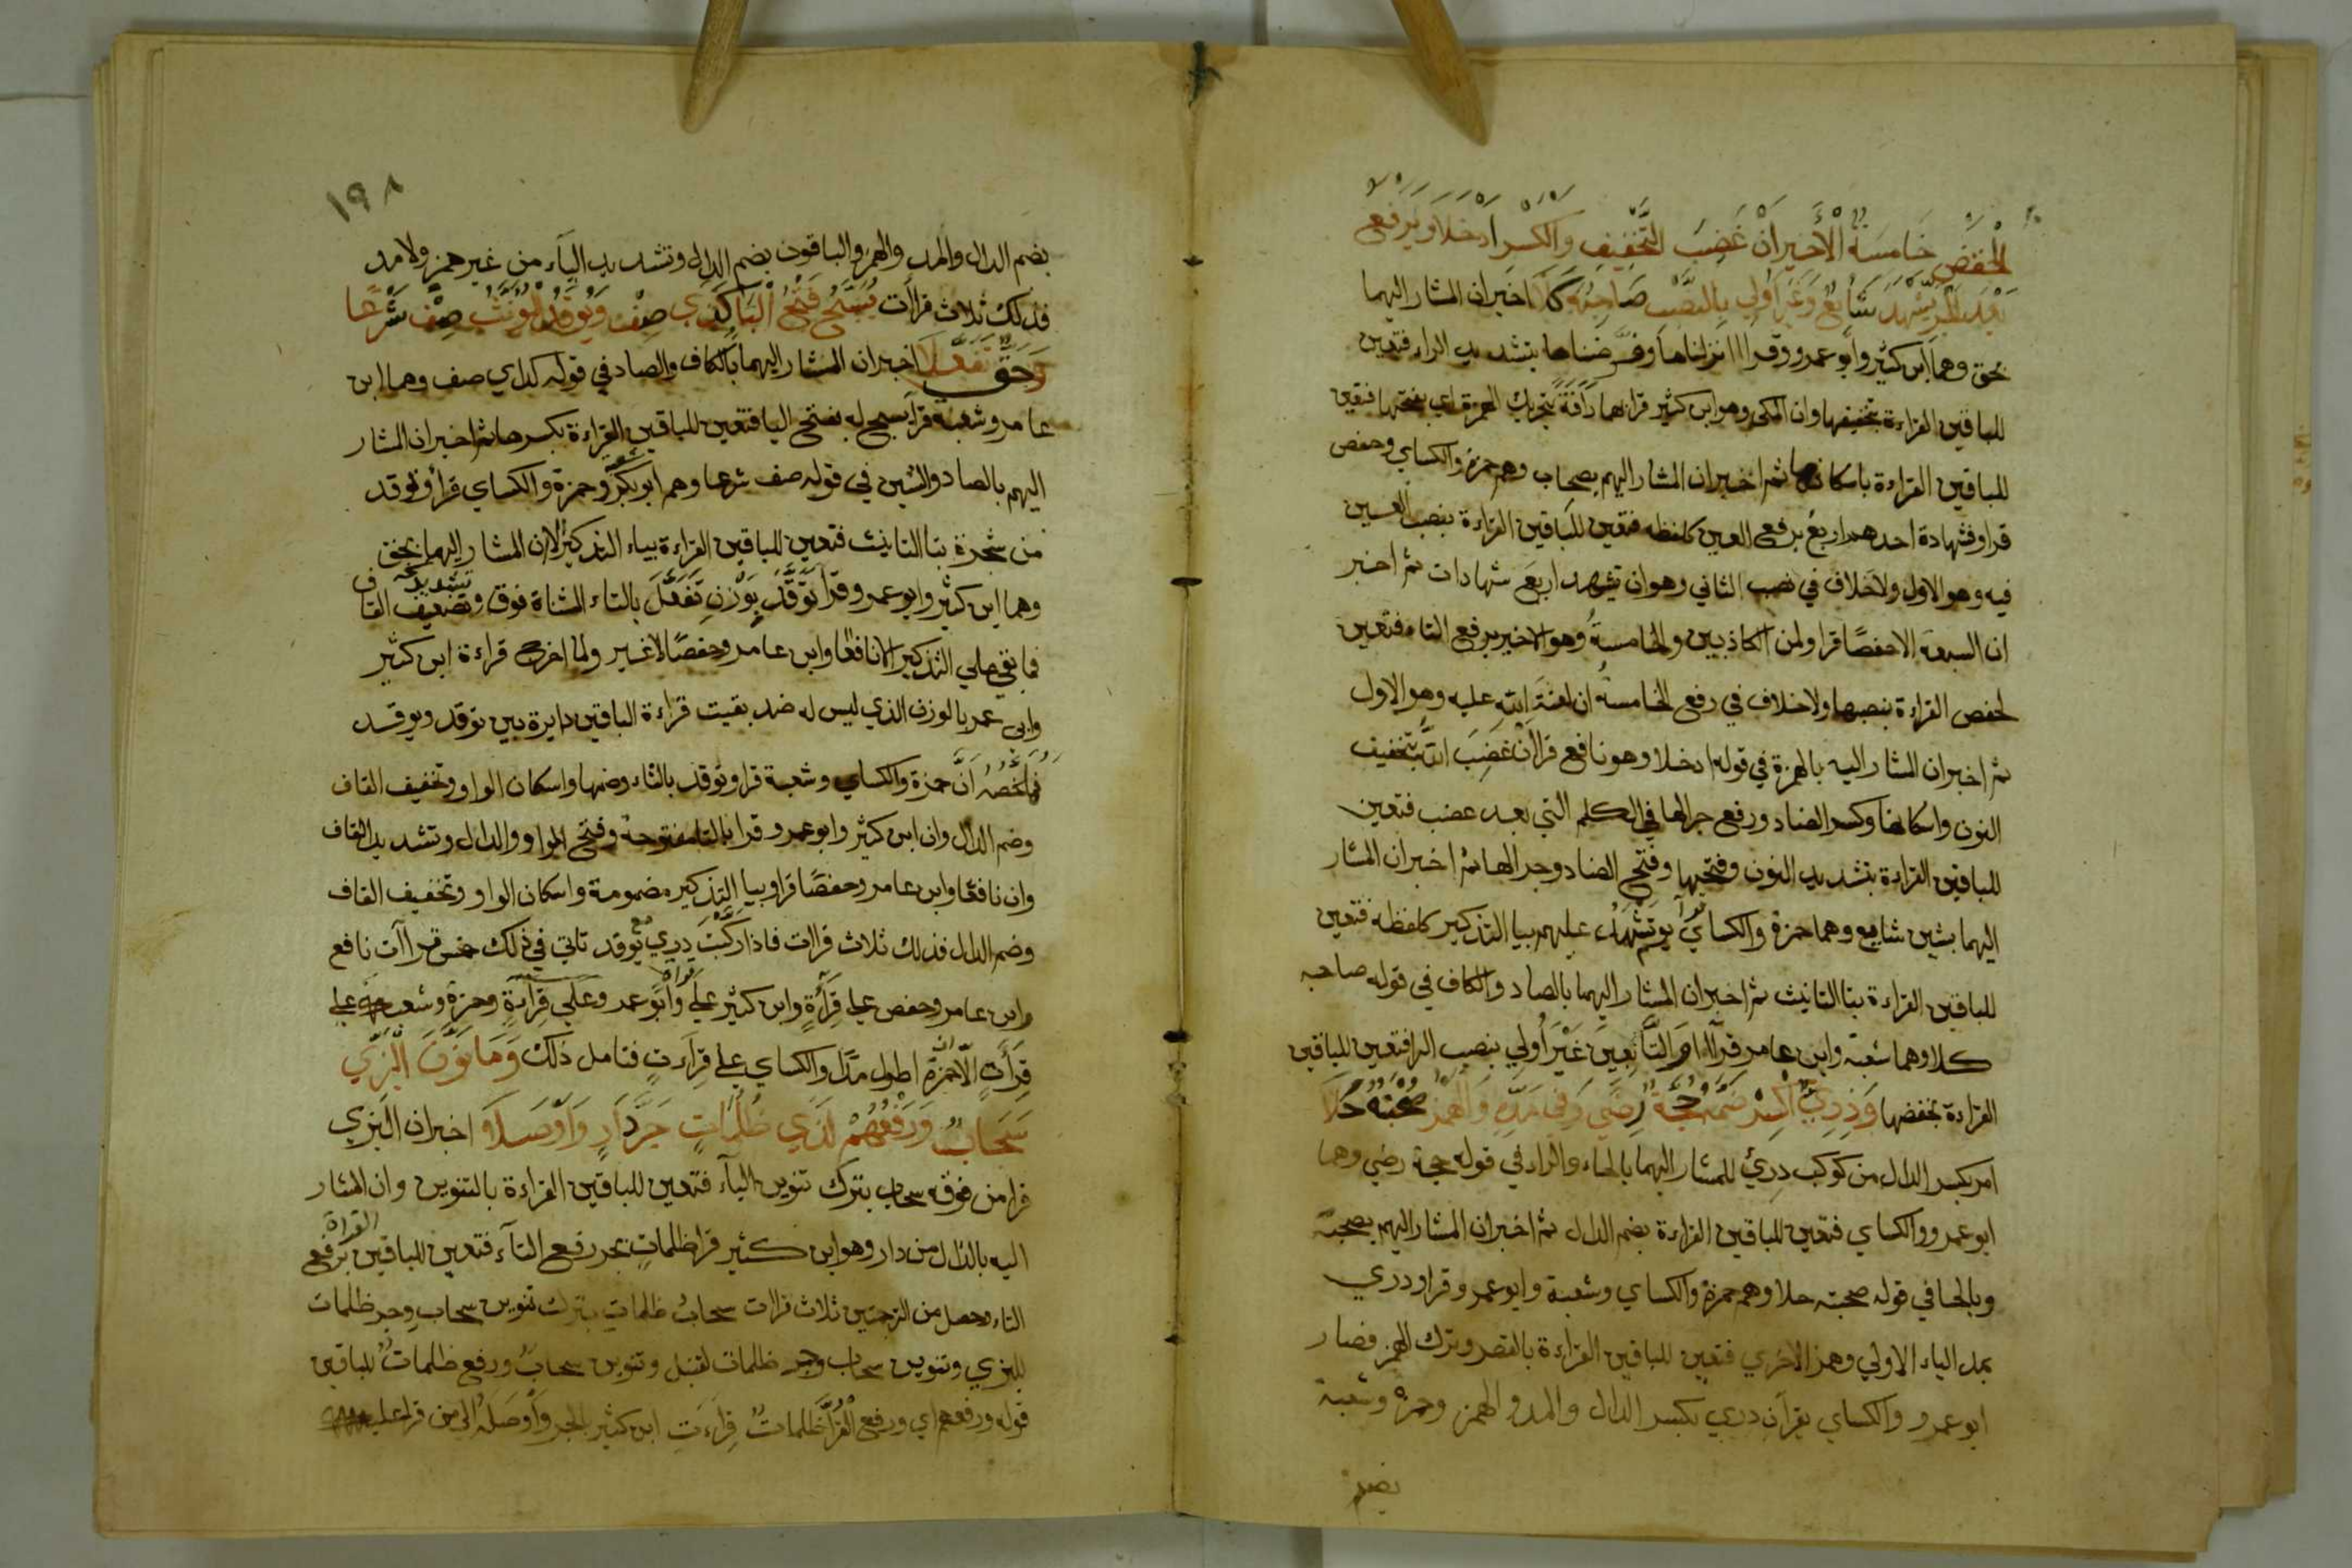 الحفص خامسة الأخير أن غضب التخفيف والكسر أدخلا ويرفع
بعد الجر يشهد شايع وغير أولي بالنصب صاحبه كلا اخبر ان المشار اليهما
بحق وهما ابن كثير وابو عمرو وقرا انزلناها وفرّضناها بتشديد الراء فتعين
للباقين القراءة بتخفيفها وان المكي وهو ابن كثير قرا بهما رأفة بتحريك الهمزة اي بفتحها فتعين
للباقين القراءة باسكانها ثم اخبر ان المشار اليهم بصحاب وهم حمزة والكساي وحفص
قراو فشهادة احدهم اربع برفع العين كلفظه فتعين للباقين القراءة بنصب العين
فيه وهو الاول ولا خلاف في نصب الثاني وهو ان تشهد اربع شهادات ثم اخبر
ان السبعة الا حفصًا قرا ولمن الكاذبين والخامسة وهو الاخير برفع التاء فتعين
لحفص القراءة بنصبها ولا خلاف في رفع الخامسة ان لعنة الله عليه وهو الاول
ثم اخبر ان المشار اليه بالهمزة في قوله ادخلا وهو نافع قرا أن غضب الله بتخفيف
النون واسكانها وكسر الضاد ورفع جر الها في الكلم التي بعد غضب فتعين
للباقين القراءة بتشديد النون وفتحها وفتح الضاد وجر الها ثم اخبر ان المشار
اليهما بشين شايع وهما حمزة والكساي قرآ يوم تشهد عليهم بيا التذكير كلفظه فتعين
للباقين القراءة بتا التانيث ثم اخبر ان المشار اليهما بالصاد والكاف في قوله صاحبه
كلا وهما شعبة وابن عامر قرآ التابعين غير أولي بنصب الرا فتعين للباقين
القراءة بخفضها ودري اكسر ضمه حجة رضى وفي مده والهمز صحبته حلا
امر بكسر الدال من كوكب دريء للمشار اليهما بالحاء والراء في قوله حجة رضي وهما
ابو عمرو والكساي فتعين للباقين القراءة بضم الدال ثم اخبر ان المشار اليهم بصحبة
وبالحا في قوله صحبته حلا وهم حمزة والكساي وشعبة وابو عمرو قراو دري
بمد الياء الاولي وهمز الاخري فتعين للباقين القراءة بالقصر وترك الهمز فصار
ابو عمرو والكساي يقرآن دري بكسر الدال والمد والهمز وحمزة وشعبة
بضم
١٩٨
بضم الدال والمد والهمز والباقون بضم الدال وتشديد الياء من غير همز ولا مد
فذلك ثلاث قراآت يسبح فتح البا كذي صف ويوقد المؤنث صف شرعا
وحق تفعلا اخبر ان المشار اليهما بالكاف والصاد في قوله كذاي صف وهما ابن
عامر وشعبة قرآ يسبح له بفتح اليا فتعين للباقين القراءة بكسرها ثم اخبر ان المشار
اليهم بالصاد والشين في قوله صف شرعا وهم ابو بكر وحمزة والكساي قراو توقد
من شجرة بتا التانيث فتعين للباقين القراءة بياء التذكير الا ان المشار اليهما بحق
وهما ابن كثير وابو عمرو وقرآ توقد بوزن تفعل بالتاء المثناة فوق وتضعيف القاف
فما بقي علي التذكير الا نافعًا وابن عامر وحفصًا لا غير ولما اخرج قراءة ابن كثير
وابي عمر بالوزن الذي ليس له ضد بقيت قراءة الباقين دايرة بين توقد ويوقد
فملخصه أن حمزة والكساي وشعبة قراو توقد بالتاء وضمها واسكان الواو وتخفيف القاف
وضم الدال وان ابن كثير وابو عمرو قرا بالتا مفتوحة وفتح الواو والدال وتشديد القاف
وان نافعًا وابن عامر وحفصًا قراو بيا التذكير مضمومة واسكان الواو وتخفيف القاف
وضم الدال فذلك ثلاث قراات فاذا ركبت دري مع يوقد تاتي في ذلك خمس قراآت نافع
وابن عامر وحفص علي قراءة وابن كثير علي قراة وابو عمر وعلي قراءة وحمزة وشعبة علي
قراءة الا ان حمزة اطول مدا والكساي علي قراءت فتامل ذلك وما نون البزي
سحاب ورفعهم لدي ظلمات جر دار وأوصلا اخبر ان البزي
قرا من فوقه سحاب بترك تنوين الباء فتعين للباقين القراءة بالتنوين وان المشار
اليه بالدال من دار وهو ابن كثير قرا ظلمات بجر رفع التاء فتعين للباقين القراة برفع
التاء وحصل من الترجمتين ثلاث قراات سحاب ظلمات بترك تنوين سحاب وجر ظلمات
للبزي وتنوين سحاب وجر ظلمات لقنبل وتنوين سحاب ورفع ظلمات للباقين
قوله ورفعهم اي ورفع القرا ظلمات قراءت ابن كثير بالجر وأوصله الي من قرا عليه